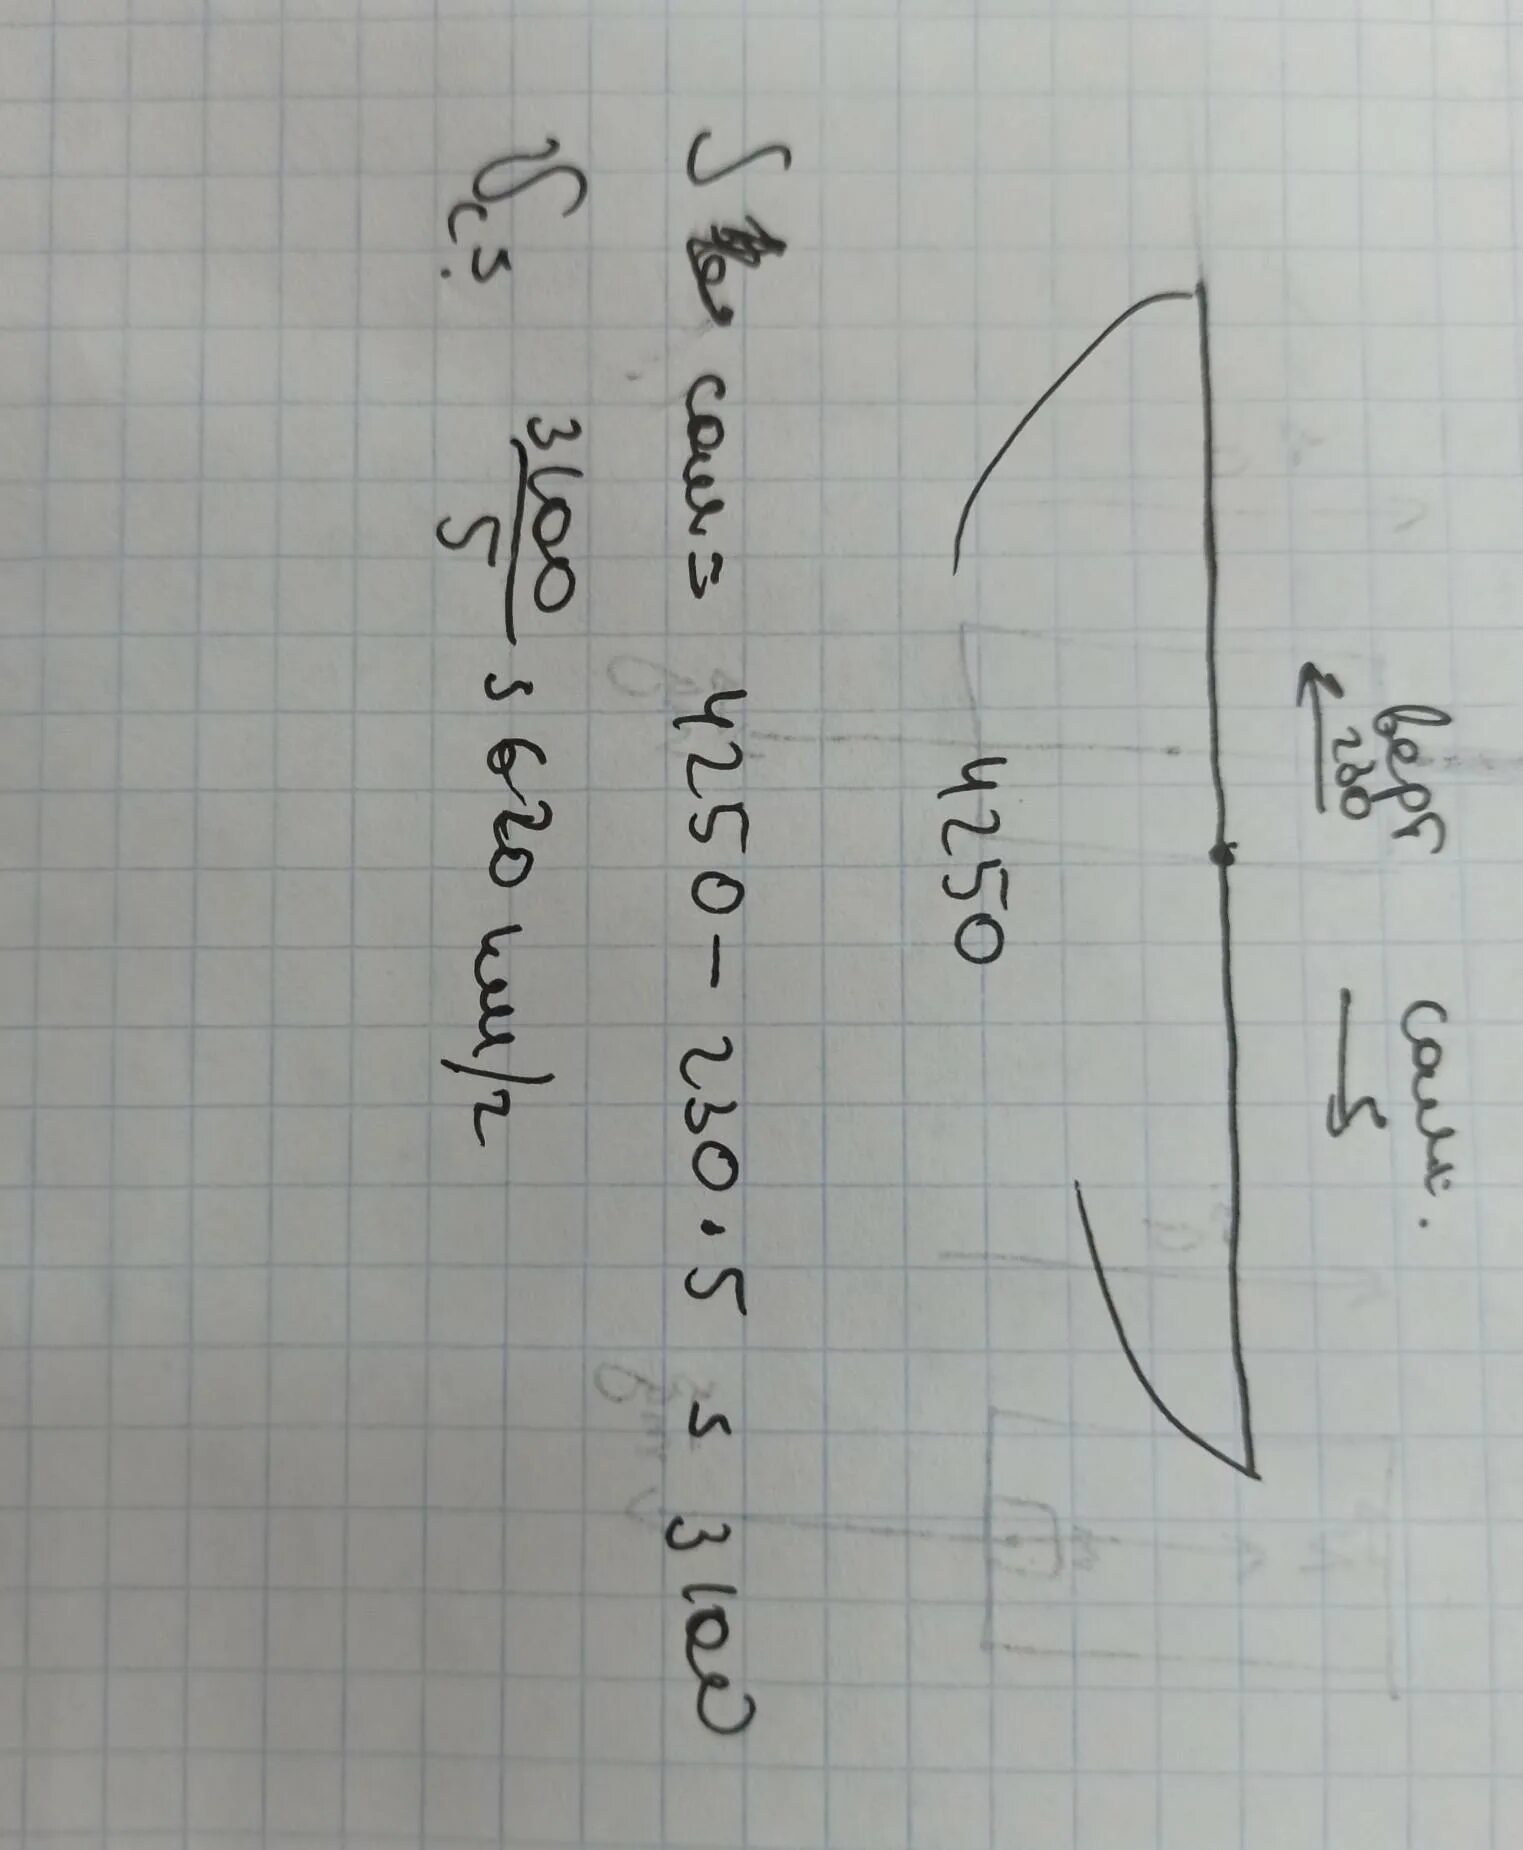 верт сам.
230
4250
S сам = 4250 - 230 · 5 = 3100
V с. = 3100/5 = 620 км/ч